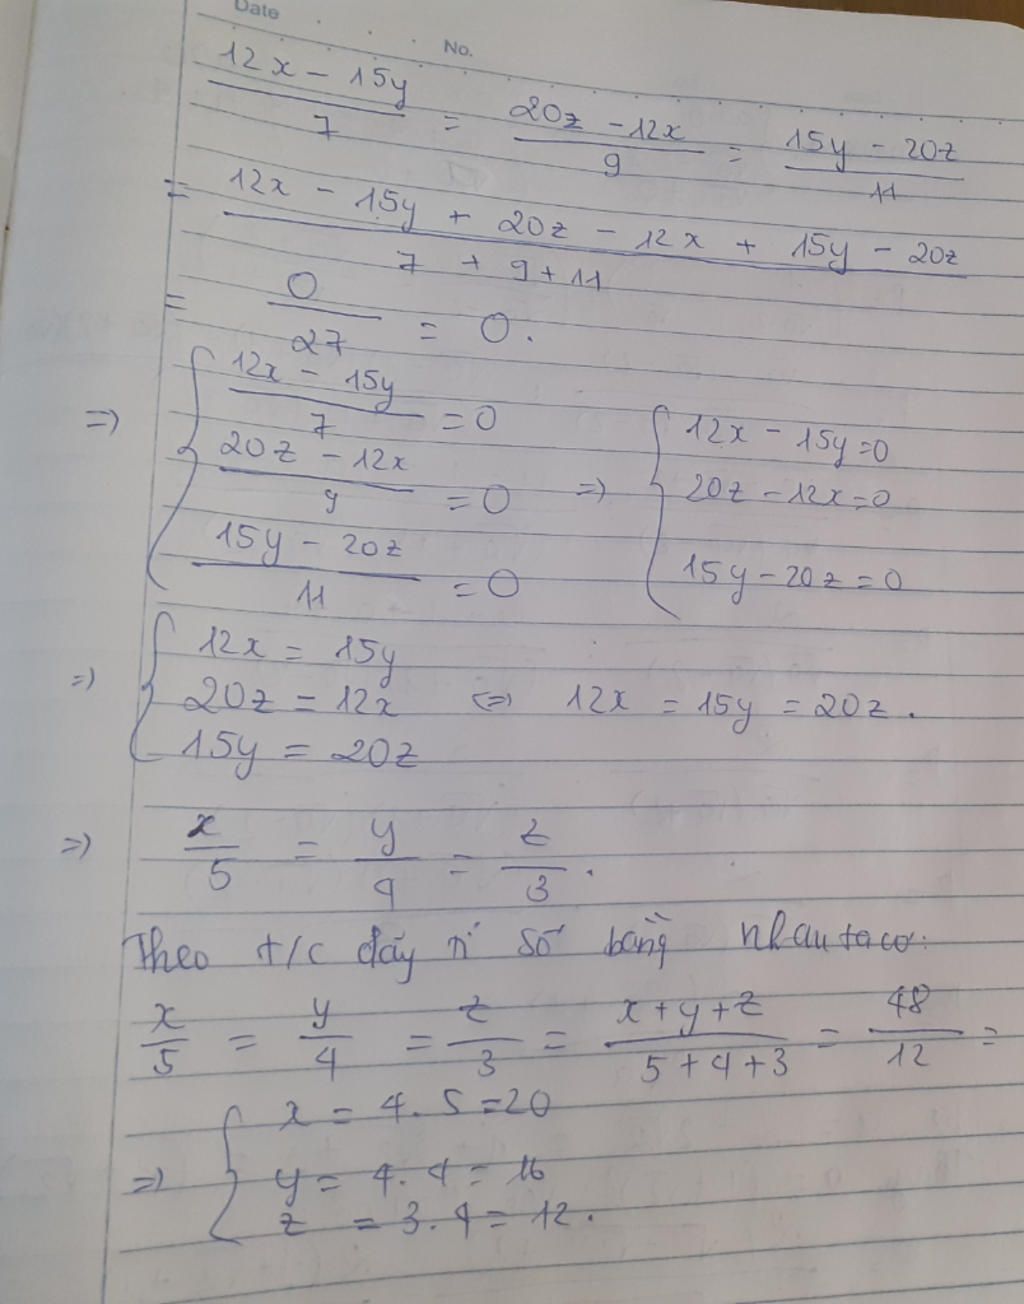 Date
No.
12x - 15y / 7 = 20z - 12x / 9 = 15y - 20z / 11
= 12x - 15y + 20z - 12x + 15y - 20z / 7 + 9 + 11
= 0 / 27 = 0.
=> { 12x - 15y / 7 = 0 => { 12x - 15y = 0
20z - 12x / 9 = 0 20z - 12x = 0
15y - 20z / 11 = 0 15y - 20z = 0
=> { 12x = 15y
20z = 12x <=> 12x = 15y = 20z.
15y = 20z
=> x / 5 = y / 4 = z / 3.
Theo t/c dãy tỉ số bằng nhau ta có:
x / 5 = y / 4 = z / 3 = x + y + z / 5 + 4 + 3 = 48 / 12 =
=> { x = 4. 5 = 20
y = 4. 4 = 16
z = 3. 4 = 12.